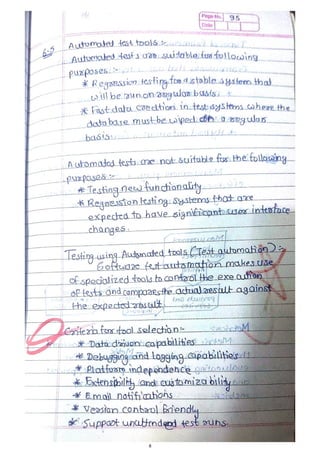 Page No. 95
Date
6.5 Automated test tools :-
Automated tests are suitable for following
purposes :-
* Regression testing for a stable system that
will be run on regular basis.
* Fast data creation in test systems where the
database must be wiped on a regular
basis.
Automated tests are not suitable for the following
purposes :-
* Testing new functionality
* Regression testing. Systems that are
expected to have significant user interface
changes.
Testing using Automated tools (Test automation) :-
Software test automation makes use
of specialized tools to control the execution
of tests and compares the actual result against
the expected result.
Criteria for tool selection :-
* Data driven capabilities
* Debugging and logging capabilities
* Platform independence
* Extensibility and customizability
* Email notifications
* Version control friendly
* Support unattended test runs.